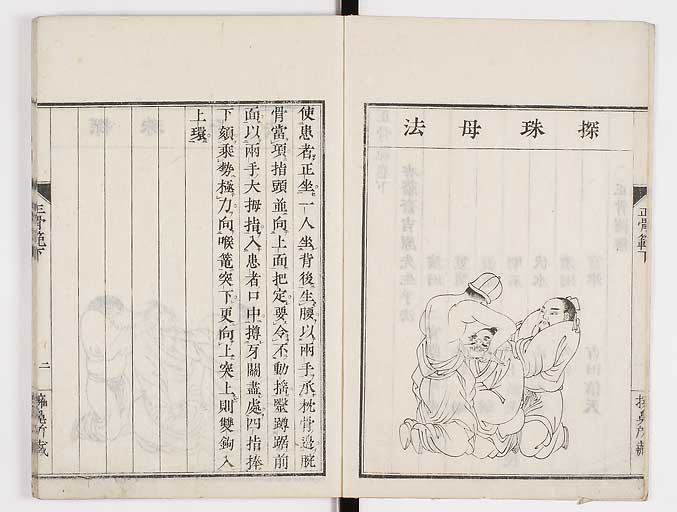 探珠母法
正骨範下
使患者正坐一人坐背後生腰以兩手承枕骨邊腕
骨當項指頭並向上面把定要令不動搖毉蹲踞前
面以兩手大拇指入患者口中撙牙關盡處四指捧
下頦乘勢極力向喉篭突下更向上突上則雙鉤入
上環
正骨範下
二